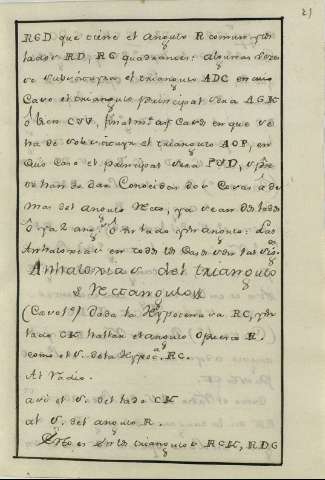 RGD que tiene el angulo R comun, y los
lados RD, RG quadrantes: algunas veze
se subvistuyen el triangulo ADC en cuio
Caso el triangulo principal sera AGK
ô bien CVV, finalmte ay Casos en que se
ha de substituyr el triangulo AOP, en
Cuio Caso el principal sera PVD, y sie
de han de dar Conocidas dos Cosas, â de
mas del angulo recto, ya sean dos lados
ô ya 2 angs ô un lado y un angulo: Las
Analogias en todos los Casos son las sigs
Analogias del triangulo
Rectangulo
(Caso 1º) Dada la Hypotenusa RC, y un
lado CK hallar el angulo opuesto R.
como el S. de la Hypoc.a RC.
Al Radio.
asi el S. del lado CK
al S. del angulo R.
Esto es en los triangulos RCK, RDG